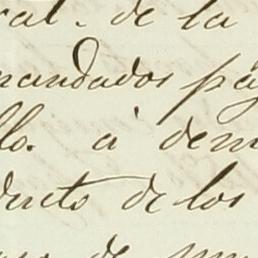 ral. de la
mandados pág
llo. á dem
ducto de los
de